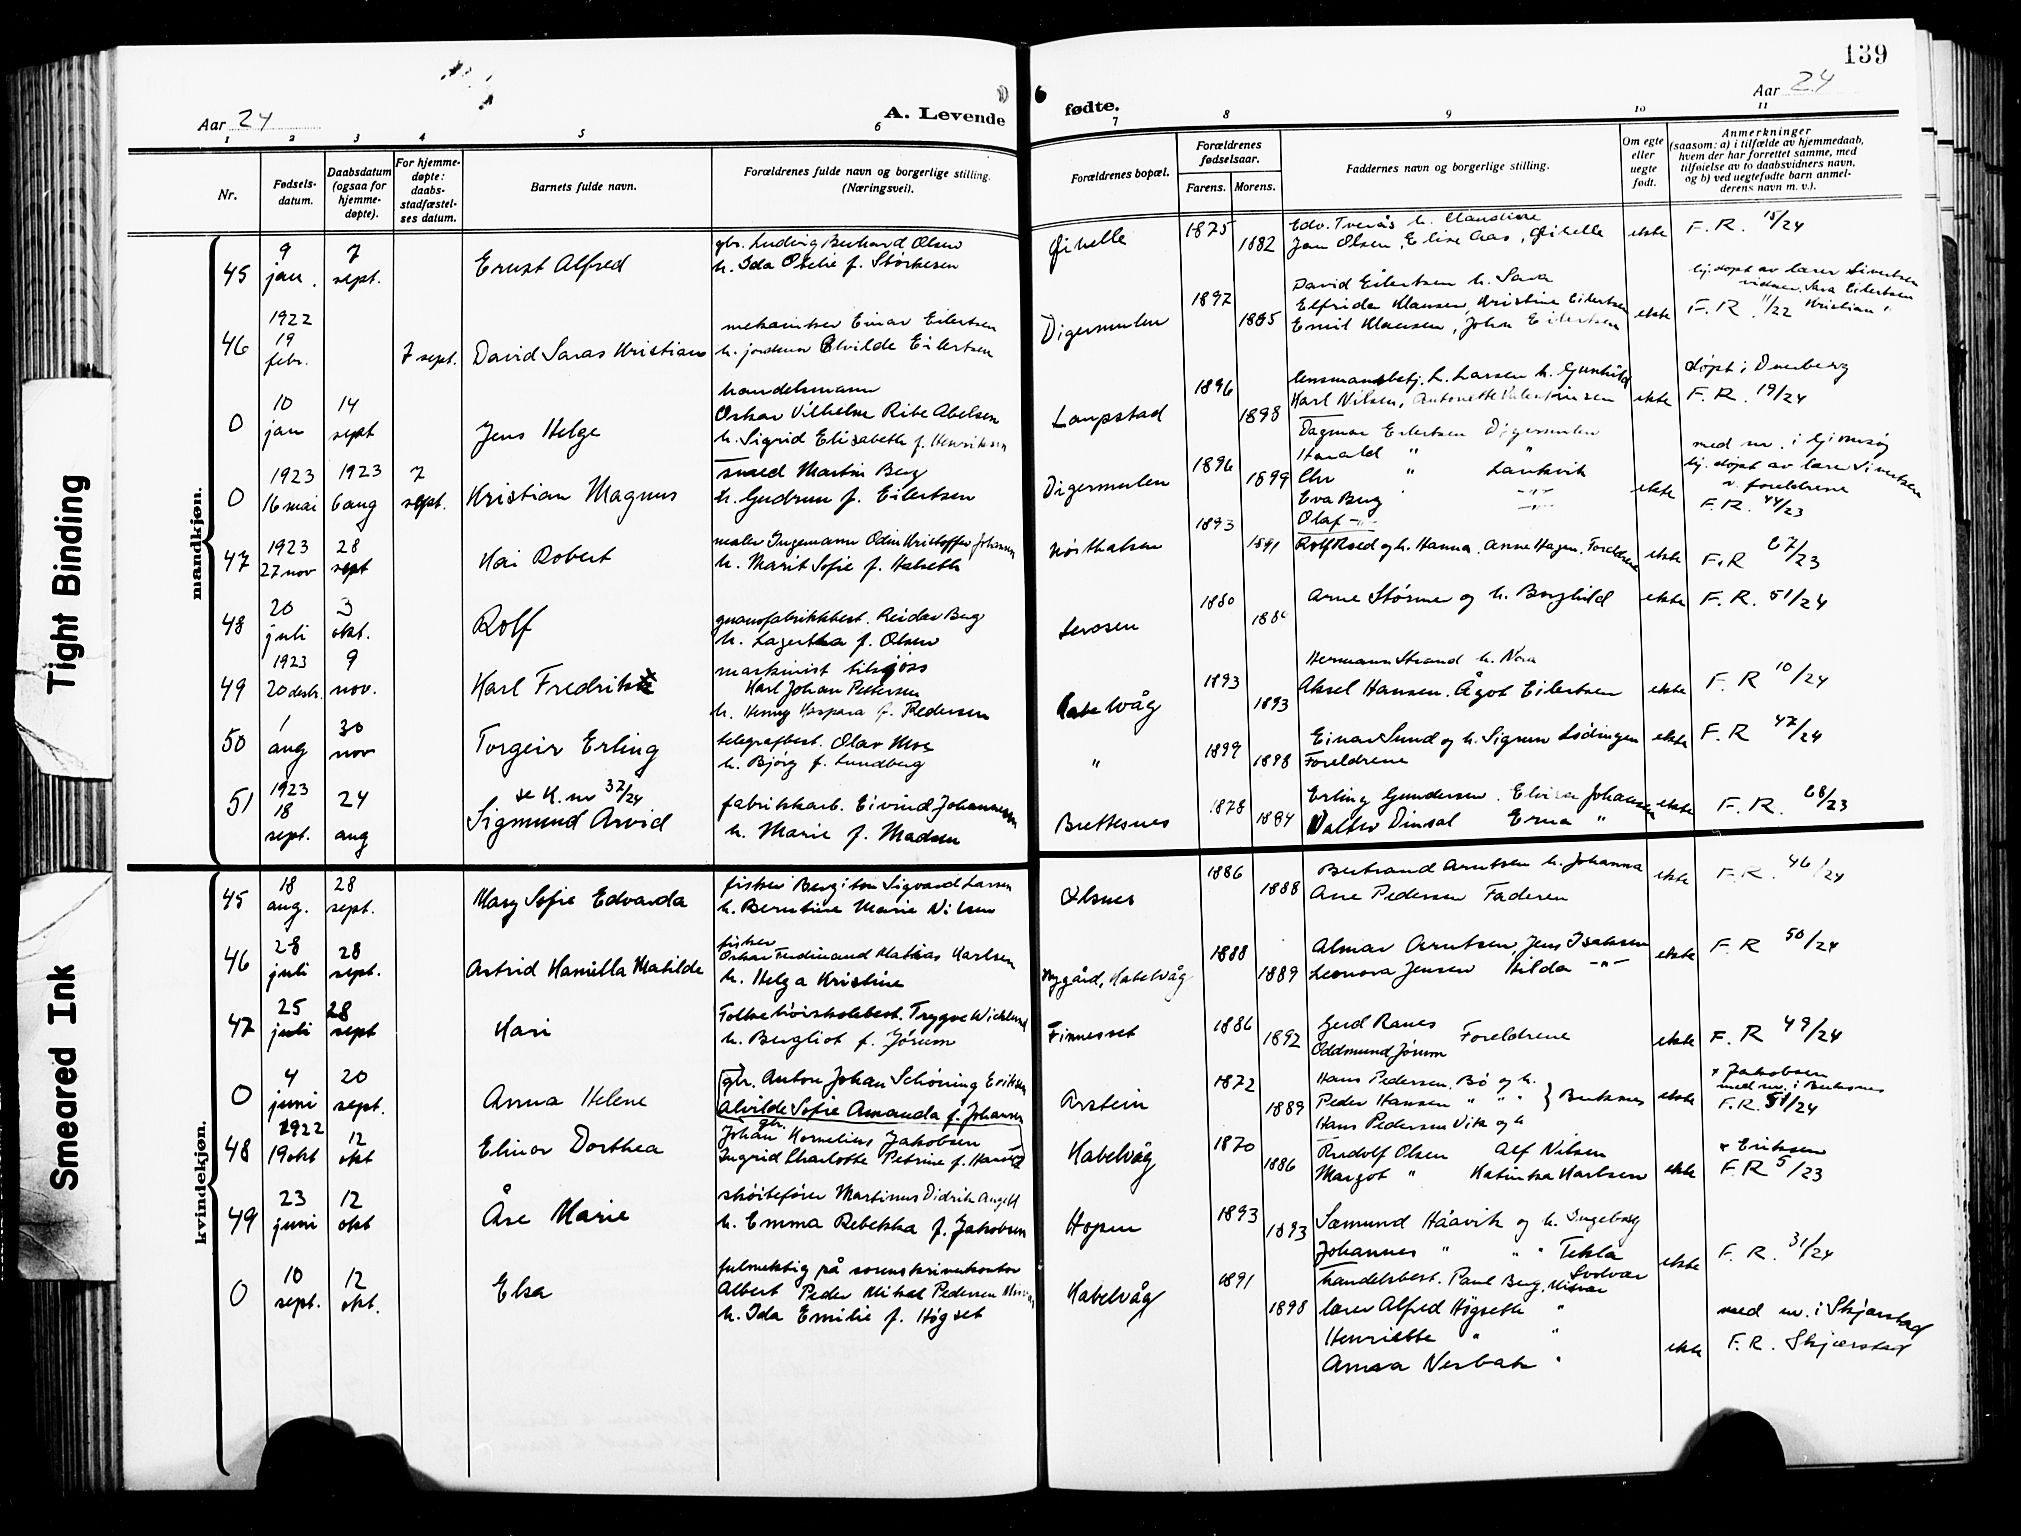 139
Aar 24
A. Levende
fødte.
Aar 24
1 2 3 4 5 6 7 8 9 10 11
Nr.
Fødsels-
datum.
Daabsdatum
(ogsaa for
hjemme-
døpte).
For hjemme-
døpte:
daabs-
stadfæstel-
ses datum.
Barnets fulde navn.
Forældrenes fulde navn og borgerlige stilling.
(Næringsvei).
Forældrenes bopæl.
Forældrenes
fødselsaar.
Farens. Morens.
Faddernes navn og borgerlige stilling.
Om egte
eller
uegte
født.
Anmerkninger
(saasom: a) i tilfælde av hjemmedaab,
hvem der har forrettet samme, med
tilføielse av to daabsvidners navn,
og b) ved uegtefødte barn anmel-
derens navn m. v.).
mandkjøn.
45
9
jan.
7
sept.
Ernst Alfred
gbr. Ludvig Berhard Olsen
h. Ida Otelie f. Størkesen
Øihelle
1875
1882
Edv. Tverås h. Claudine
Jon Olsen, Elise Aas, Øihelle
ekte
F. R. 15/24
46
1922
19
febr.
7 sept.
David Saras Kristian
mekaniker Einar Eilertsen
h. jordmor Alvilde Eilertsen
Digermulen
1897
1895
David Eilertsen h. Sara
Elfrida Klausen, Kristine Eilertsen
Emil Klausen, Johan Eilertsen
ekte
hj. døpt av lærer Sivertsen
vidner. Sara Eilertsen
F. R. 11/22 Kristian "
0
10
jan
14
sept
Jens Helge
handelsmann
Oskar Vilhelm Ribe Abelsen
h. Sigrid Elisabeth f. Henriksen
Laupstad
1896
1898
lensmansbetj. L. Larsen h. Gunhild
Karl Nilsen, Antonette Valentinsen
ekte
døpt i Dverberg
F. R. 19/24
0
1923
16 mai
1923
6 aug
7
sept.
Kristian Magnus
smed Martin Berg
h. Gudrun f. Eilertsen
Digermulen
1896
1899
Dagmar Eilertsen Digermulen
Harald " "
Chr " Laukvik
Eva Berg
Olaf -"-
ekte
med nr. i Gimsøy
hj. døpt av lærer Sivertsen
v. foreldrene
F. R. 44/23
47
1923
27 nov
28
sept
Kai Robert
maler Ingemann Odin Kristoffer Johansen
h. Marit Sofie f. Halseth
1893
1891
Rolf Roed og h. Hanna. Anne Hagen. Foreldrene
ekte
F. R 67/23
48
20
juli
3
okt.
Rolf
guanofabrikkbest. Reidar Berg
h. Lagertha f. Olsen
1880
Arne Størmer og h. Borghild
ekte
F. R. 51/24
49
1923
20 desbr.
9
nov.
Karl Fredrik
maskinist tilsjøss
Karl Johan Pettersen
h. Henny Kaspara f. Pedersen
Kabelvåg
1893
1893
Hermann Strand h. Nora
Aksel Hansen. Ågot Eilertsen
ekte
F. R 10/24
50
1
aug
30
nov
Torgeir Erling
telegrafbest. Olav Moe
h. Bjørg f. Lundberg
"
1899
1898
Einar Sund og h. Sigrun Lødingen
Foreldrene
ekte
F. R 47/24
51
1923
18
sept.
24
aug
se K. nr 37/24
Sigmund Arvid
fabrikkarb. Eivind Johannesen
h. Marie f. Madsen
Brettesnes
1878
1884
Erling Gundersen. Elvira Johansen
Valter Dinsal Erna "
ekte
F. R. 68/23
kvindekjøn.
45
18
aug.
28
sept.
Mary Sofie Edvarda
fisker Bergiton Sigvard Larsen
h. Berntine Marie Nilsen
Olsnes
1886
1888
Bertrand Arntsen h. Johanna
Ase Pedersen Faderen
ekte
F. R. 46/24
46
28
juli
28
sept.
Astrid Hamilla Matilde
fisker
Oskar Ferdinand Matias Karlsen
h. Helga Kristine
Nygård, Kabelvåg
1888
1889
Almar Arntsen, Jens Isaksen
Leonora Jensen Hilda -"-
ekte
F. R 50/24
47
25
juli
28
sept
Kari
Folkehøiskolebest. Trygve Wicklund
h. Bergliot f. Jørum
Finnesset
1886
1892
Gerd Ranes
Oddmund Jørum Foreldrene
ekte
F. R 49/24
0
4
juni
20
sept.
Anna Helene
gbr. Anton Johan Schøning Eriksen
Alvilde Sofie Amanda f. Johansen
Årstein
1872
1889
Hans Pedersen. Bø og h.
Peder Hansen " " " } Buksnes
Hans Pedersen Vik og h
ekte
x Jakobsen
med nr. i Buksnes
F. R. 51/24
48
1922
19 okt
12
okt
Elinor Dorthea
gbr.
Johan Kornelius Jakobsen
Ingrid Charlotte Petrine f. Hansen
Kabelvåg
1870
1886
Rudolf Olsen Alf Nilsen
Margot " Katinka Karlsen
ekte
x Eriksen
F. R 5/23
49
23
juni
12
okt
Åse Marie
skøitefører Martinus Didrik Angell
h. Emma Rebekka f. Jakobsen
Hopen
1893
1893
Sæmund Håavik og h. Ingeborg
Johannes " " " Tekla
ekte
F. R. 31/24
0
10
sept.
12
okt.
Elsa
fulmektig på sorenskriverkontor
Albert Peder Mikal Pedersen Misvær
h. Ida Emilie f. Høgset
Kabelvåg
1891
1898
handelsbest. Paul Berg, Misvær Svolvær
lærer Alfred Høgseth "
Henriette " "
Anna Nerbak "
ekte
med nr. i Skjerstad
F. R. Skjerstad
Tight Binding
Smeared Ink